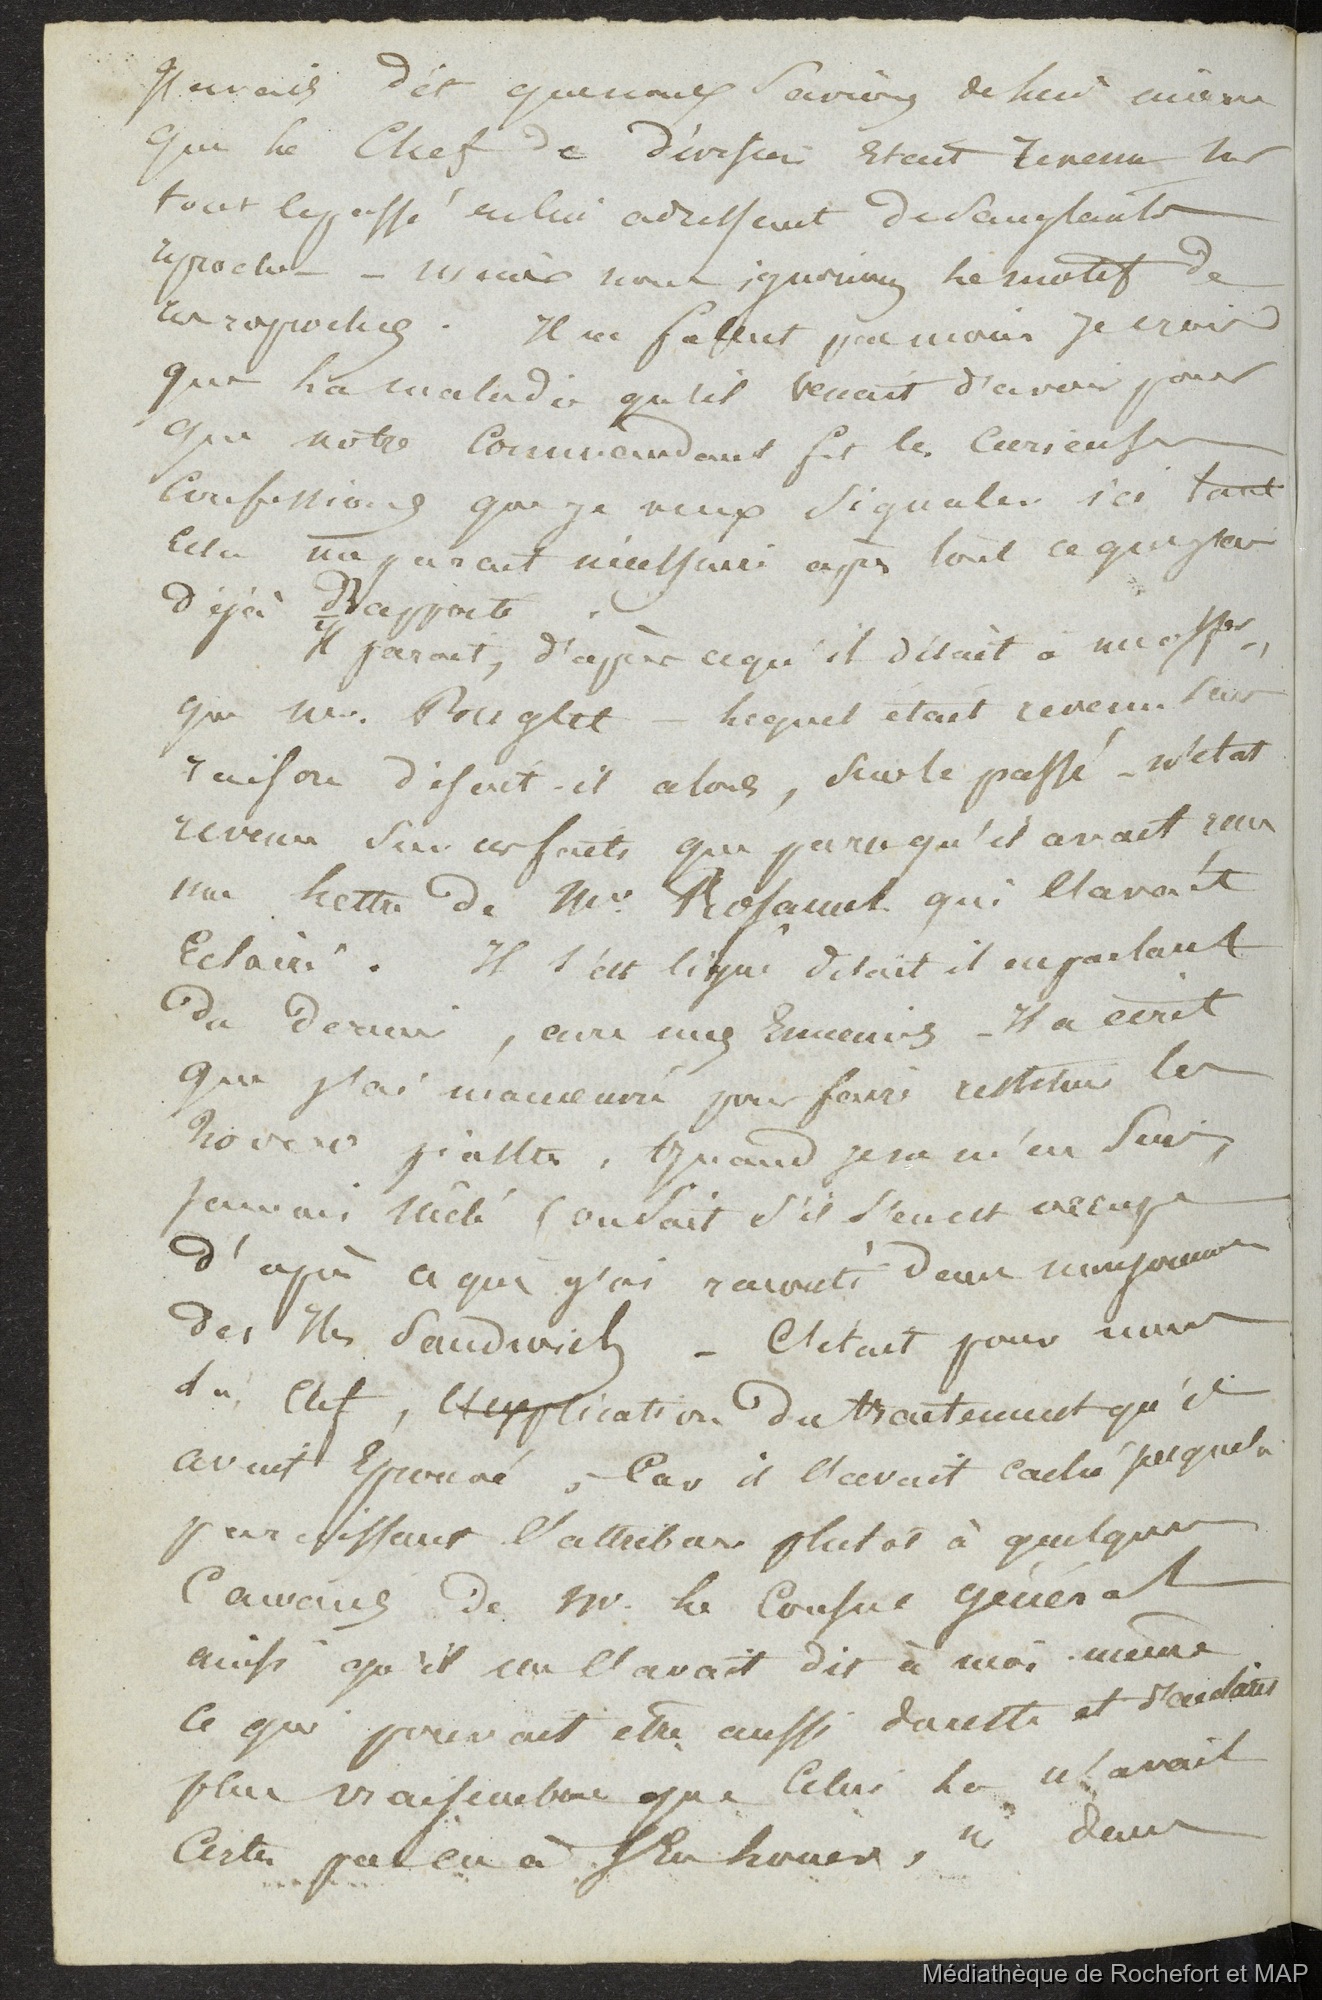 J'avais dit que nous savions de lui même
que le Chef de division était revenu sur
tout le passé en lui adressant de sanglants
reproches - mais nous ignorions le motif de
ces reproches. Il ne fallut pas moins je crois
que la maladie qu'il venait d'avoir pour
que notre Commandant fit les Curieuses
Confessions que je veux signaler ici tant
cela me parait nécessaire après tout ce que j'ai
déjà rapporté.
Il parait, d'après ce qu'il disait à
que Mr. - lequel était revenu sans
raison disait-il alors, sur le passé - n'était
revenu sur ces faits que parce qu'il avait reçu
une lettre de Mr. Rosamel qui l'avait
Eclairé. Il s'est ligué disait il en parlant
du dernier, avec mes Ennemis - Il a écrit
que j'ai manoeuvré pour faire restituer les
piastres, quand je ne m'en suis
jamais mêlé (on sait s'il s'en est occupé
d'après ce que j'ai raconté dans mon journal
des Iles Sandwich - C'était pour nous
la clef, l'explication du traitement qu'il
avait éprouvé, car il l'avait caché jusques là
paraissant l'attribuer plutôt à quelques
Cancans de Mr. le Consul général
ainsi qu'il me l'avait dit à moi même
ce qui pouvait être aussi du reste et d'autant
plus vraisemblable que celui la n'avait
Certes pas eu à s'en louer, ni dans
Médiathèque de Rochefort et MAP